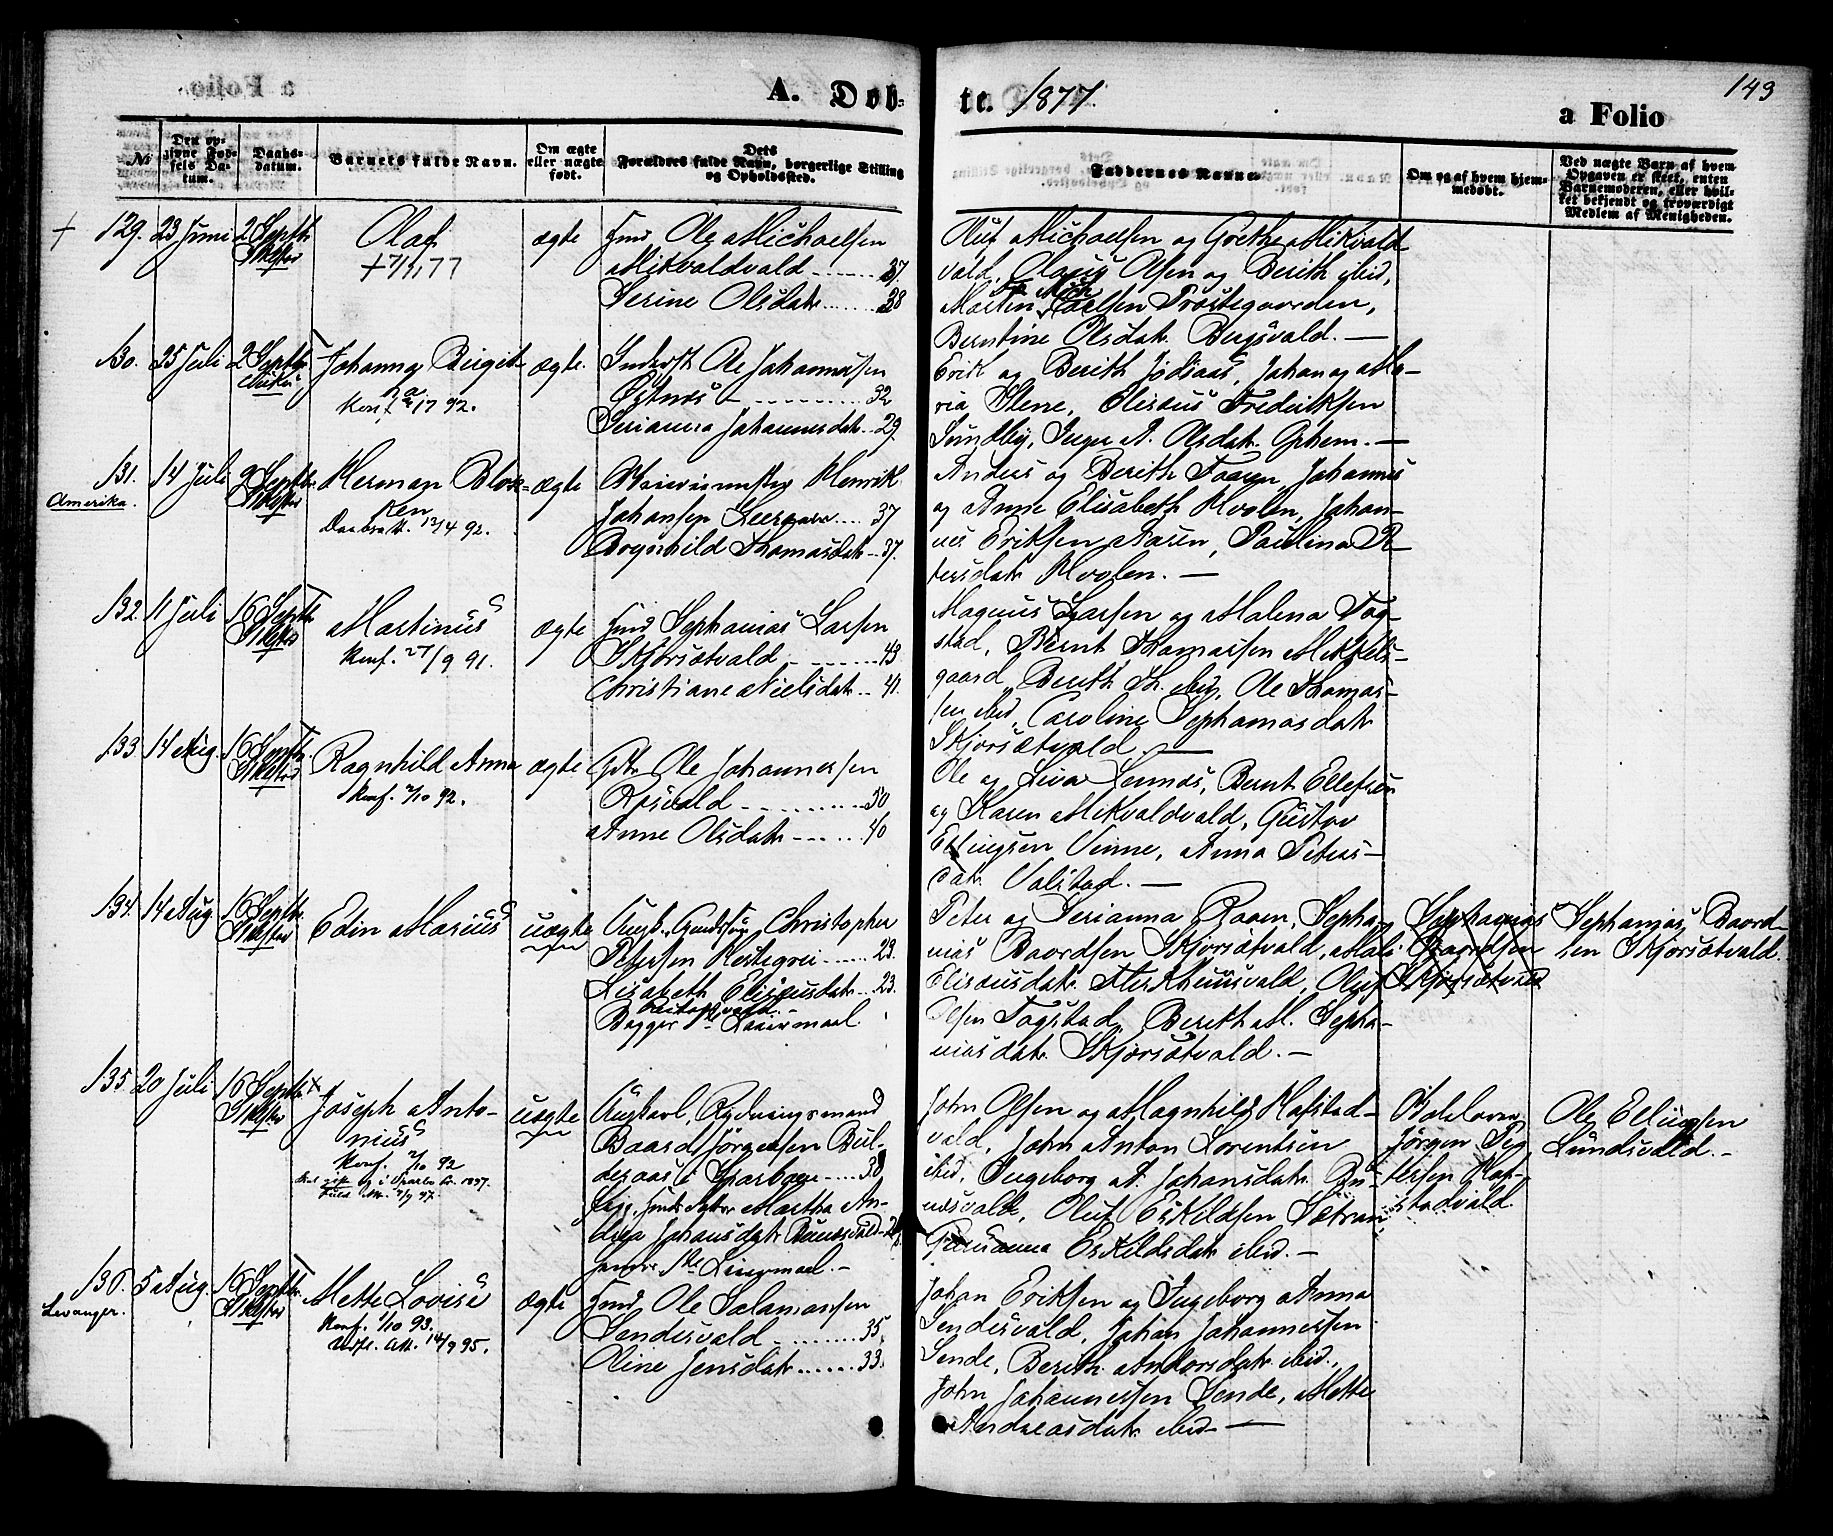 A. Døb- te. 1877. 143
a Folio
No
Den opgivne Fødsels Datum.
Daabsdatum.
Barnets fulde Navn.
Om ægte eller uægte født.
Dets Forældres fulde Navn, borgerlige Stilling og Opholdssted.
Faddernes Navne
Om og af hvem hjemmedøbt.
Ved uægte Barn af hvem Opgaven er skeet, enten Barnemoderen, eller hvilket bekjendt og troværdigt Medlem af Menigheden.
+ 129. 23 Juni 2 Septbr.
Olaf
ægte
Hmd Ole Michaelsen
Mikvoldvald 37
Serine Olsdatr 38
Oluf Michaelsen og Grethe Mikvold-
vald, Olaus Olsen og Berith ibid,
Præstegaarden,
Berntine Olsdatr Bergsvald. —
130. 25 Juli 2 Septbr
Johanna Birgit-
ha
Konf. 92.
ægte.
Inderst Ole Johannessen
Østnæs 32
Serianna Johannesdatr 29.
Erik og Berith Jødsaas, Johan og Ma-
ria Stene, Elisæus Frederiksen
Sundby, Inger A. Olsdatr Ophem. —
131. 14 Juli 2 Septbr.
Amerika.
Herman Blok-
ken
Daabsatt. 12/4 92.
ægte
Henrik
Johansen 37
Thomasdatr 37.
Anders og Berith Faaren, Johannes
og Anne Elisabeth Hvolen, Johan-
nes Eriksen Aasen, Paulina P-
tersdatr Hvolen. —
132. 11 Juli 16 Septbr
Martinus
Konf. 27/9 91.
ægte
Hmd Sephanias Larsen
Skjørsætvald 43
Christiane Nielsdatr 41.
Magnus Larsen og Malena Tog-
stad, Bernt Thomassen Mikkels-
gaard, Berith Th. ibid, Ole Thomas-
sen ibid, Caroline Sephaniasdatr
Skjørsætvald. —
133. 14 Aug. 16 Septbr.
Ragnhild Anna
Konf. 2/10 92.
ægte
Gbr Ole Johannessen
Røsvald 50
Anne Olsdatr 40
Ole og Lennæs, Bernt Ellefsen
og Karen Mikvoldvald, Gustav
Ellingsen Vinne, Anna Peters-
datr Valstad. —
134. 14 Aug. 16 Septbr.
Edin Marius
uægte
Ungk. Christopher
Petersen 23.
Lisabeth Elisæusdatr 23.
Begges 1te Leiermaal.
Peter og Serianna Raaen, Sepha-
nias Baardsen Skjørsætvald,
Elisæusdatr, Oluf
Olsen Togstad, Berith M. Sepha-
niasdatr Skjørsætvald. —
Sephanias
Baardsen
Skjørsætvald
Sephanias Baard-
sen Skjørsætvald.
135. 20 Juli 16 Septbr
Joseph Anto-
nius
Konf. 2/10 92
uægte
Ungkarl, Rydningsmand
Baard Jørgensen Bul-
deraas i Sparboen 30
Pige, Martha An-
drea Johansdatr
1te Leiermaal. —
John Olsen og Magnhild Hofstad-
vald, John Anton Lorentsen
ibid, Ingeborg A. Johansdatr Bu-
nesvald, Oluf Eskildsen Sætran
Eskildsdatr ibid. —
Skolelærer
Jørgen Pe-
tersen Hof-
stadvald.
Ole Ellingsen
Lundsvald. —
136. 5 Aug. 16 Septbr.
Levanger.
Mette Lovise
Konf. 1/10 93.
Udfl. Att. 14/9 95.
ægte
Hmd Ole Salamonsen
Sendesvald 35
Oline Jensdatr 33.
Johan Eriksen og Ingeborg Anna
Sendesvald, Johan Johannessen
Sende, Berith Andorsdatr ibid.,
John Johannessen Sende, Mette
Andreasdatr ibid —